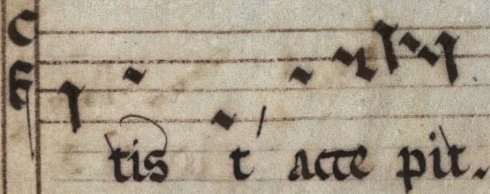 tis t accepit.